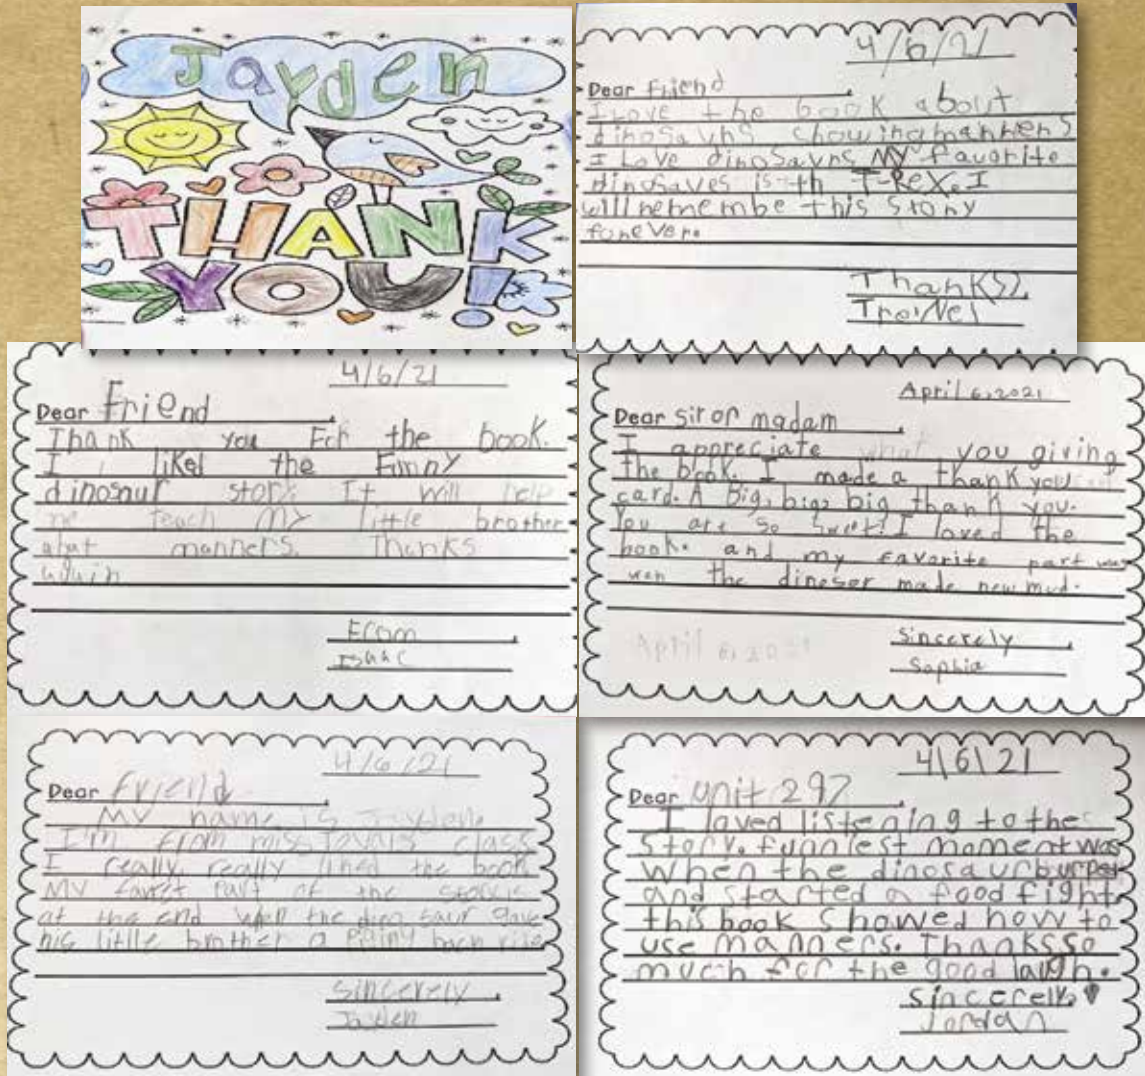 Jayden
THANK
YOU!
4/6/21
Dear friend
I Love the book about
dinosaurs showing manners
I Love dinosaurs My favorite
dinosaves is th T-Rex. I
will rememembe this story
forever.
Thanks
4/6/21
Dear Friend
Thank you For the book.
I liked the Funny
dinosaur story. It will help
me teach My little brother
manners. Thanks
again
From
Isaac
April 6, 2021
Dear sir or madam
I appreciate what you giving
the book. I made a thank you
card. A Big, big, big thank you.
You are so sweet! I loved the
book. and my favorite part was
wen the dinosor made new mud.
April 6, 2021
Sincerely
Sophia
4/6/21
Dear friend
My name is Jayden.
I'm from miss class
I really, really liked the book
My part of the story is
at the end when the dino saur gave
his little brother a back ride
Sincerely
Jayden
4/6/21
Dear Unit 297
I loved listening to the
Story. funniest moment was
when the dinosaur burped
and started a food fight
this book showed how to
use manners. Thanks so
much for the good laugh.
Sincerely
Jordan